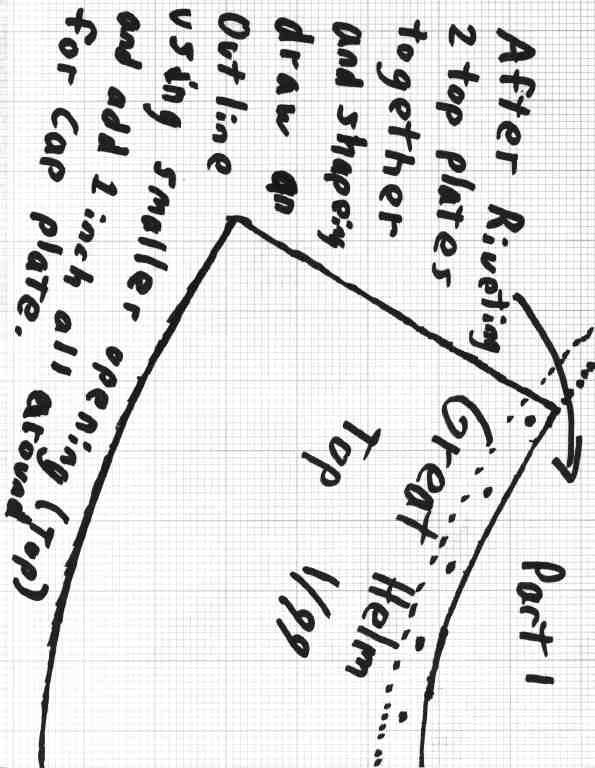 After Riveting
2 top plates
together
and shaping
draw an
Outline
using smaller opening (Top)
and add 1 inch all around
for cap plate.
Part 1
Great Helm
Top 1/99